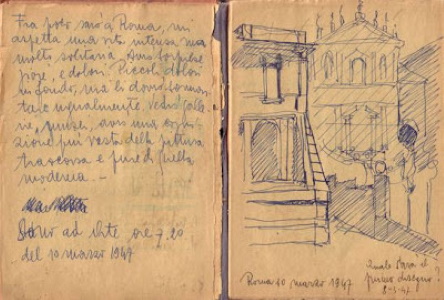 Fra poco sarò a Roma, mi
aspetta una vita intensa ma
molto solitaria. Avrò sorprese
gioje, e dolori. Piccoli dolori
in fondo, ma li dovrò
ugualmente. Vedrò
e musei, avrò una
più vasta della pittura
trascorsa e pure di quella
moderna. –
Sono ad ore 7.20
del 10 marzo 1947
Roma 10 marzo 1947
Quale sarà il
primo disegno?
8-3-47